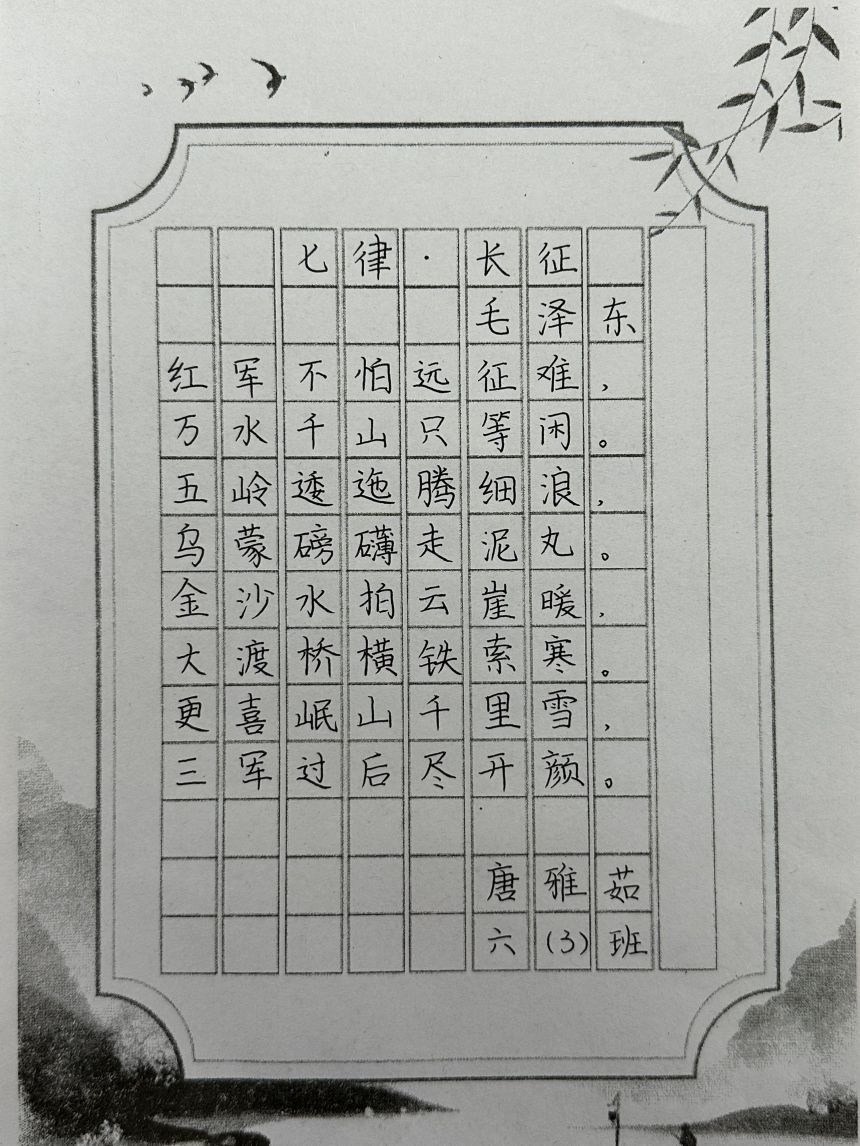 七律·长征
毛泽东
红军不怕远征难，
万水千山只等闲。
五岭逶迤腾细浪，
乌蒙磅礴走泥丸。
金沙水拍云崖暖，
大渡桥横铁索寒。
更喜岷山千里雪，
三军过后尽开颜。
唐雅茹
六（3）班